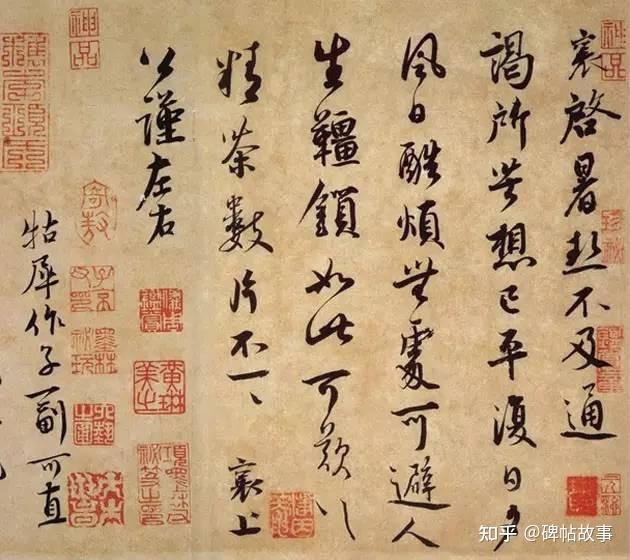 襄啓暑熱不及通
謁所苦想已平復日夕
風日酷煩無處可避人
生韁鎖如此可歎〻
精茶數片不一〻 襄上
公謹左右
牯犀作子一副可直
神品
神品
知乎 @碑帖故事